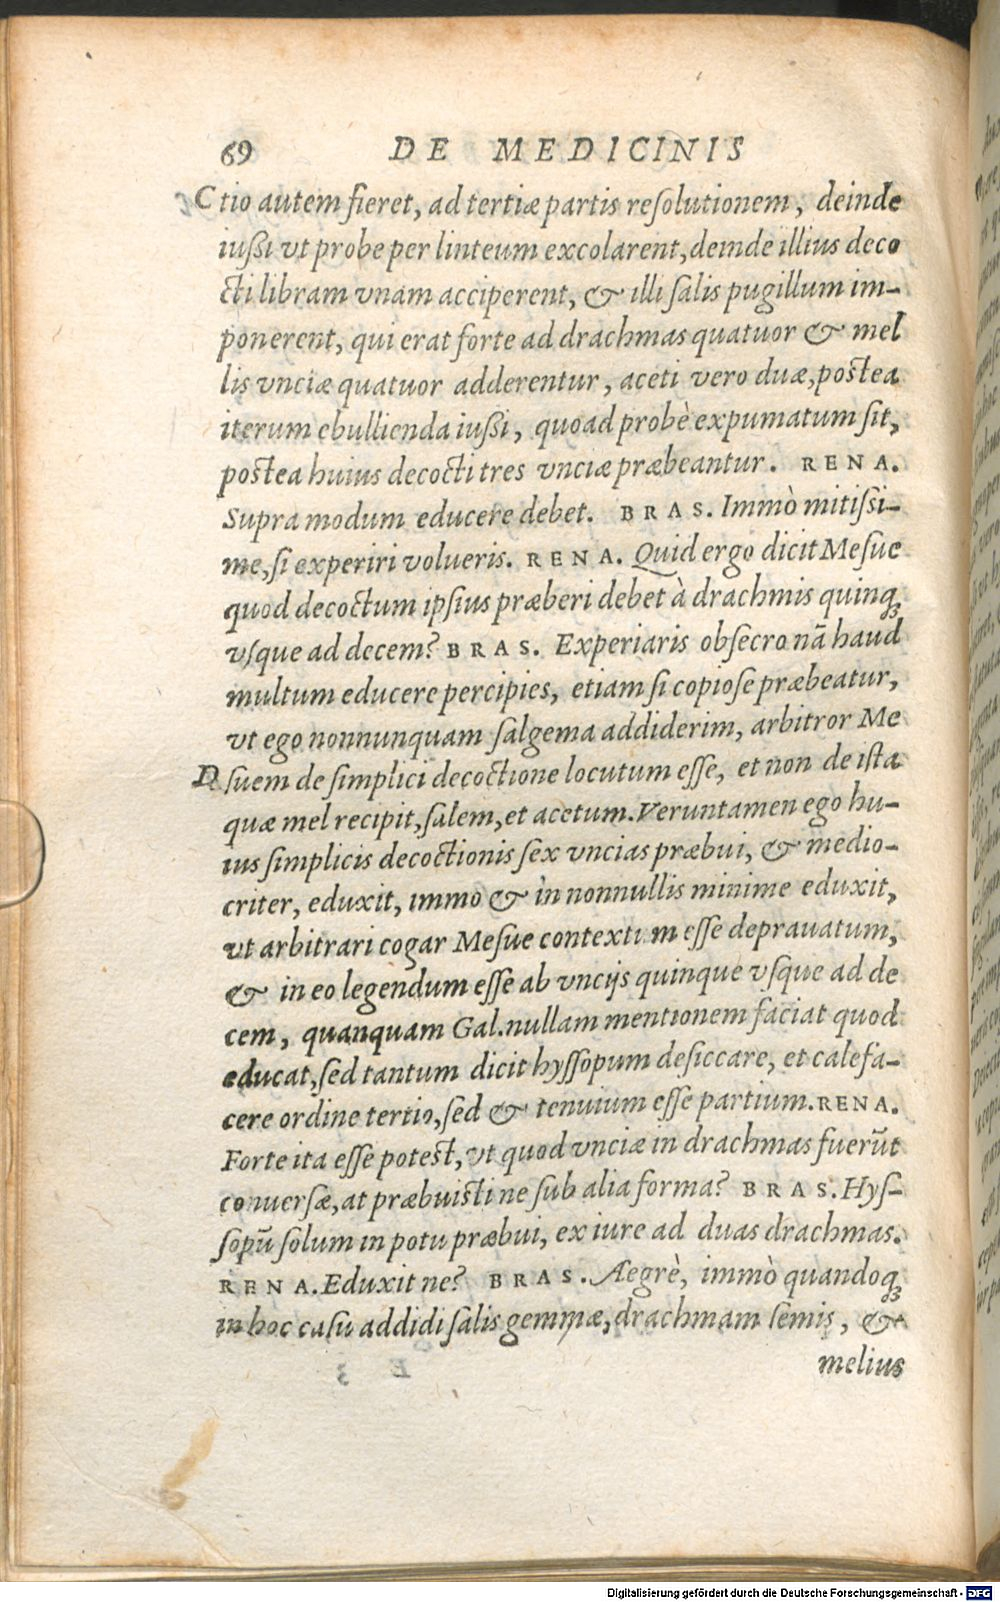 69 DE MEDICINIS
C tio autem fieret, ad tertiæ partis reſolutionem, deinde
iußi vt probe per linteum excolarent, deinde illius deco
cti libram vnam acciperent, & illi ſalis pugillum im-
ponerent, qui erat forte ad drachmas quatuor & mel
lis vnciæ quatuor adderentur, aceti vero duæ, postea
iterum ebullienda iußi, quoad probè expumatum ſit,
postea huius decocti tres vnciæ præbeantur. RENA.
Supra modum educere debet. BRAS. Immò mitiſsi-
me, ſi experiri volueris. RENA. Quid ergo dicit Meſue
quod decoctum ipſius præberi debet à drachmis quinqꝫ
vſque ad decem? BRAS. Experiaris obſecro nã haud
multum educere percipies, etiam ſi copioſe præbeatur,
vt ego nonnunquam ſalgema addiderim, arbitror Me
D ſuem de ſimplici decoctione locutum eſſe, et non de ista
quæ mel recipit, ſalem, et acetum. Veruntamen ego hu-
ius ſimplicis decoctionis ſex vncias præbui, & medio-
criter, eduxit, immo & in nonnullis minime eduxit,
vt arbitrari cogar Meſue contextum eſſe deprauatum,
& in eo legendum eſſe ab vncijs quinque vſque ad de
cem, quanquam Gal. nullam mentionem faciat quod
educat, ſed tantum dicit hyſſopum deſiccare, et calefa-
cere ordine tertio, ſed & tenuium eſſe partium. RENA.
Forte ita eſſe potest, vt quod vnciæ in drachmas fuerũt
conuerſæ, at præbuisti ne ſub alia forma? BRAS. Hyſ-
ſopũ ſolum in potu præbui, ex iure ad duas drachmas.
RENA. Eduxit ne? BRAS. Aegrè, immò quandoqꝫ
in hoc caſu addidi ſalis gemmæ, drachmam ſemis, &
melius
Digitalisierung gefördert durch die Deutsche Forschungsgemeinschaft - DFG